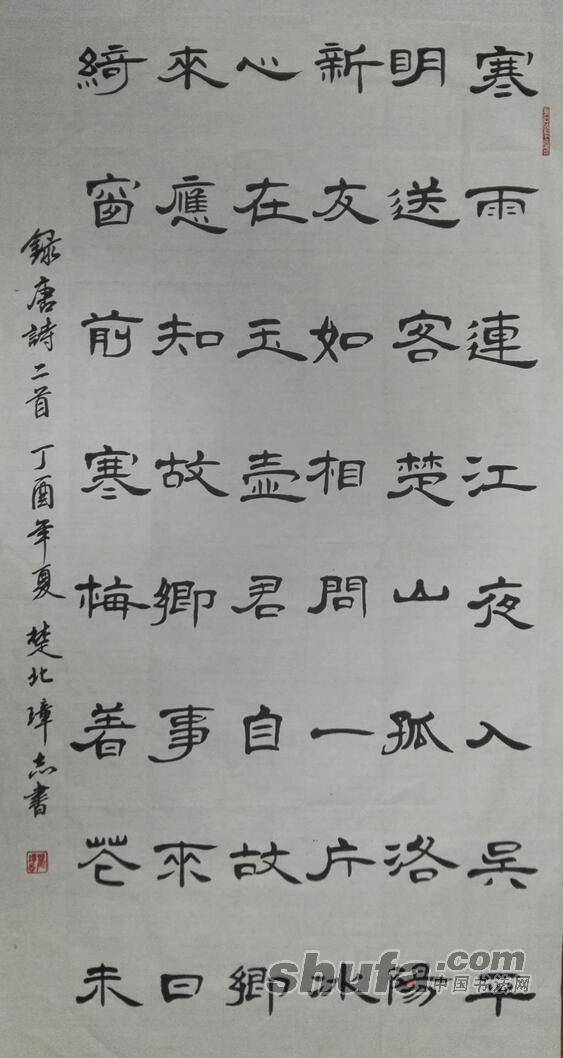 寒雨連江夜入吳平
明送客楚山孤洛陽
新友如相問一片冰
心在玉壺君自故鄉
來應知故鄉事來日
綺窗前寒梅着花未
錄唐詩二首 丁酉年夏 楚北璋志書
shufa.com
中国书法网